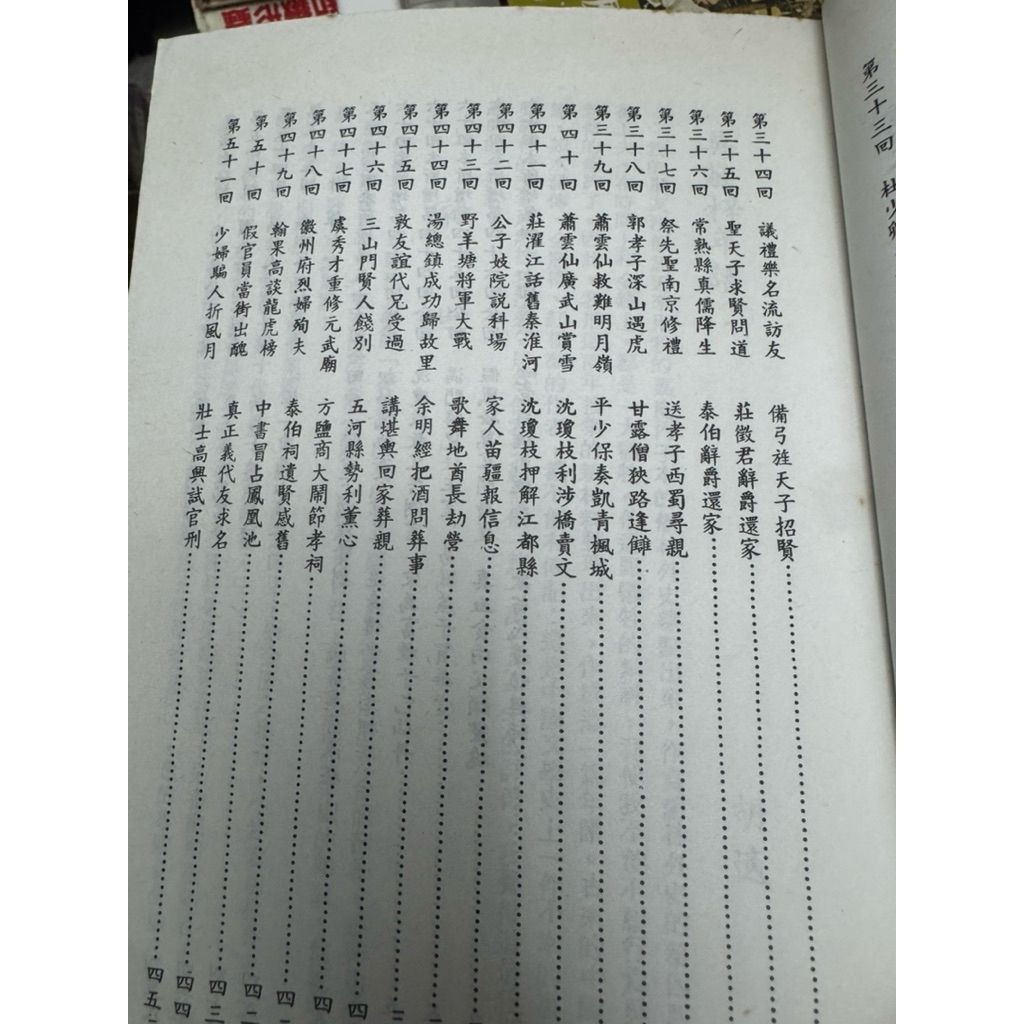 第三十三回 杜少卿
第三十四回 議禮樂名流訪友 備弓旌天子招賢
第三十五回 聖天子求賢問道 莊徵君辭爵還家
第三十六回 常熟縣真儒降生 泰伯辭爵還家
第三十七回 祭先聖南京修禮 送孝子西蜀尋親
第三十八回 郭孝子深山遇虎 甘露僧狹路逢讎
第三十九回 蕭雲仙救難明月嶺 平少保奏凱青楓城
第四十回 蕭雲仙廣武山賞雪 沈瓊枝利涉橋賣文
第四十一回 莊濯江話舊秦淮河 沈瓊枝押解江都縣
第四十二回 公子妓院說科場 家人苗疆報信息
第四十三回 野羊塘將軍大戰 歌舞地酋長劫營
第四十四回 湯總鎮成功歸故里 余明經把酒問葬事
第四十五回 敦友誼代兄受過 講堪輿回家葬親
第四十六回 三山門賢人餞別 五河縣勢利薰心
第四十七回 虞秀才重修元武廟 方鹽商大鬧節孝祠
第四十八回 徽州府烈婦殉夫 泰伯祠遺賢感舊
第四十九回 翰果高談龍虎榜 中書冒占鳳凰池
第五十回 假官員當街出醜 真正義代友求名
第五十一回 少婦騙人折風月 壯士高興試官刑